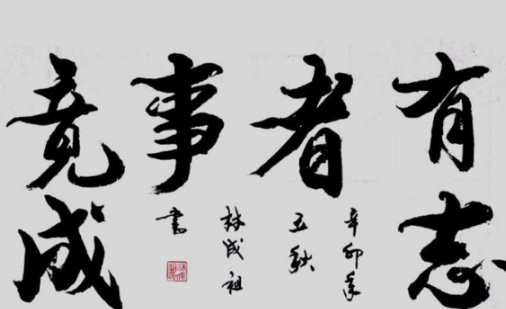 有志
者
事
竟成
辛卯年
秋
林成祖
書